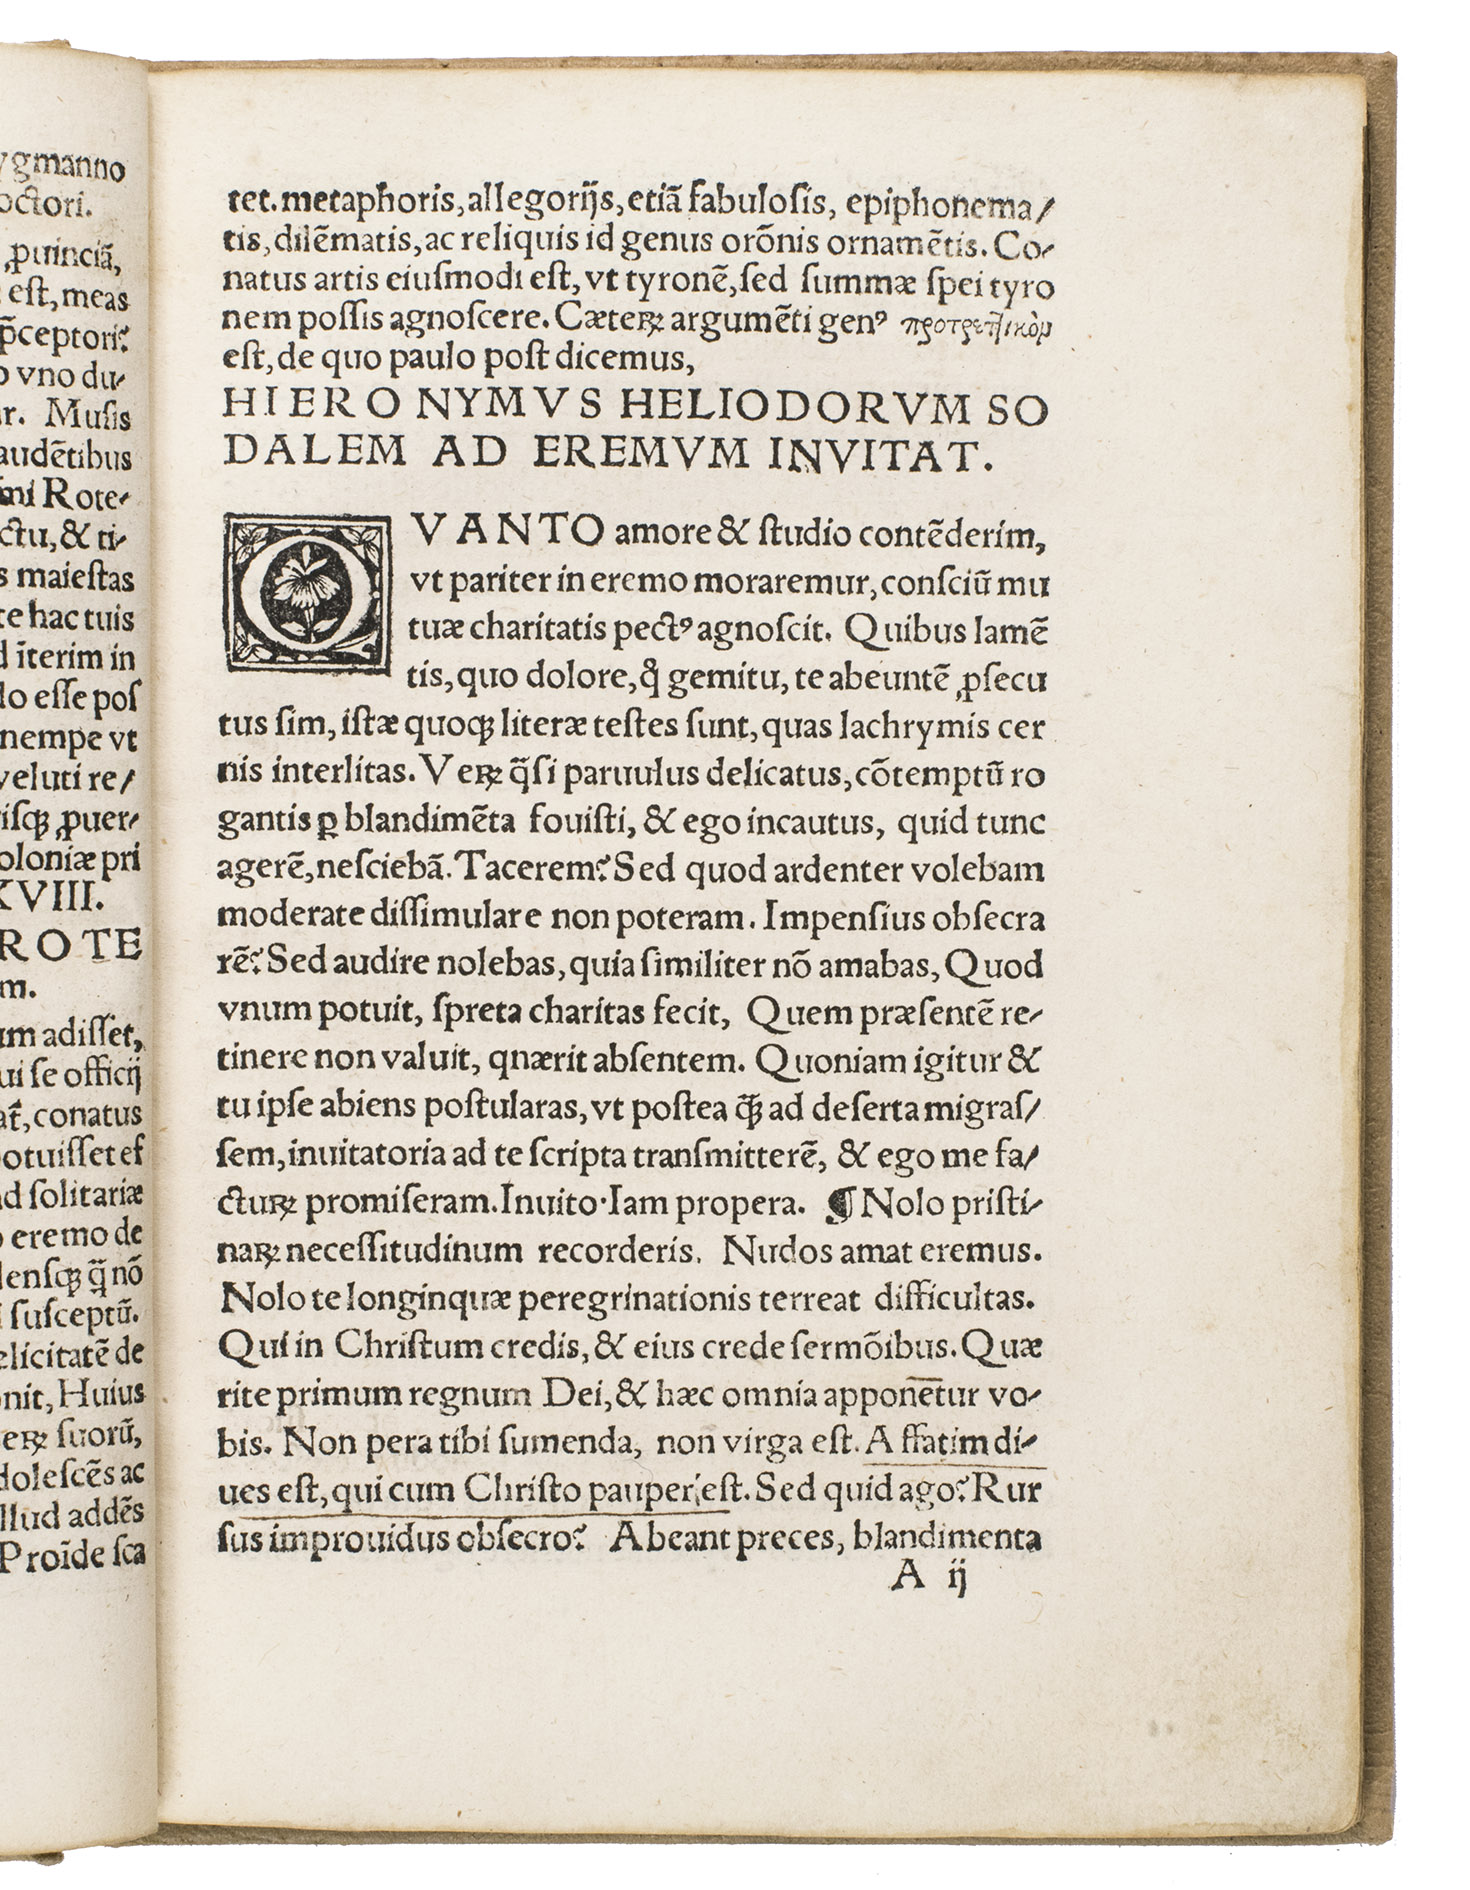 ygmanno
octori.
, ꝓuinciã,
est, meas
p̃ceptori?
o vno du⸗
ur. Musis
audẽtibus
mi Rote⸗
ctu, & ti⸗
s maiestas
te hac tuis
d ĩterim in
lo esse pos
nempe vt
veluti re/
isqꝫ ꝓuer⸗
oloniæ pri
XVIII.
ROTE
m.
um adisset,
ui se officij
at, conatus
potuisset ef
ad solitariæ
o eremo de
densqꝫ q̃ nõ
i susceptũ.
elicitatẽ de
onit, Huius
eꝝ suorũ,
dolescẽs ac
illud addẽs
Proĩde sca
tet. metaphoris, allegorijs, etiã fabulosis, epiphonema/
tis, dilẽmatis, ac reliquis id genus orõnis ornamẽtis. Co⸗
natus artis eiusmodi est, vt tyronẽ, sed summæ spei tyro
nem possis agnoscere. Cæteꝝ argumẽti genꝰ προτρεπτικὸν
est, de quo paulo post dicemus,
HIERONYMVS HELIODORVM SO
DALEM AD EREMVM INVITAT.
QVANTO amore & studio contẽderim,
vt pariter in eremo moraremur, consciũ mu
tuæ charitatis pectꝰ agnoscit. Quibus lamẽ
tis, quo dolore, q̊ gemitu, te abeuntẽ ꝓsecu
tus sim, istæ quoqꝫ literæ testes sunt, quas lachrymis cer
nis interlitas. Veꝝ q̃si paruulus delicatus, cõtemptũ ro
gantis ꝑ blandimẽta fouisti, & ego incautus, quid tunc
agerẽ, nesciebã. Tacerem? Sed quod ardenter volebam
moderate dissimulare non poteram. Impensius obsecra
rẽ? Sed audire nolebas, quia similiter nõ amabas, Quod
vnum potuit, spreta charitas fecit, Quem præsentẽ re⸗
tinere non valuit, qnærit absentem. Quoniam igitur &
tu ipse abiens postularas, vt postea q̃ꝫ ad deserta migras/
sem, inuitatoria ad te scripta transmitterẽ, & ego me fa/
ctuꝝ promiseram. Inuito· Iam propera. ¶ Nolo pristi⸗
naꝝ necessitudinum recorderis. Nudos amat eremus.
Nolo te longinquæ peregrinationis terreat difficultas.
Qui in Christum credis, & eius crede sermõibus. Quæ
rite primum regnum Dei, & hæc omnia apponẽtur vo⸗
bis. Non pera tibi sumenda, non virga est. Affatim di⸗
ues est, qui cum Christo pauper est. Sed quid ago? Rur
sus improuidus obsecro? Abeant preces, blandimenta
A ij